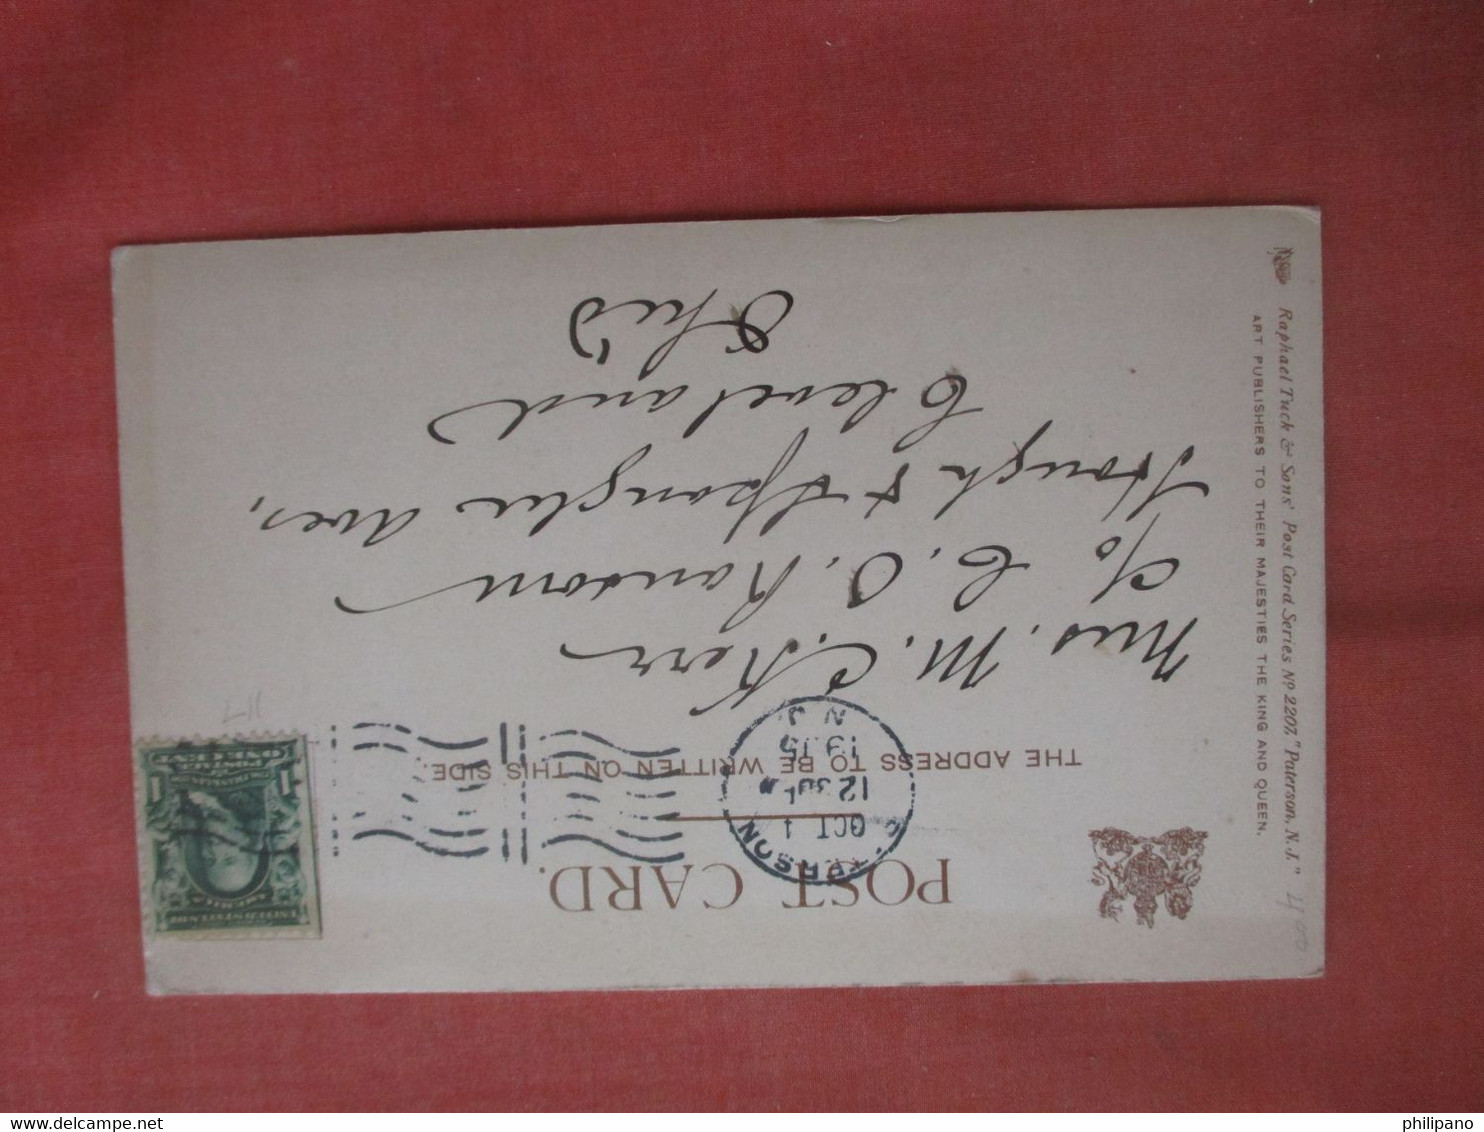 POST CARD.
THE ADDRESS TO BE WRITTEN ON THIS SIDE.
OCT 1
12 30P
1905
N.J.
UNITED STATES OF AMERICA
1 1
ONE CENT
Mrs. M. C. Kerr
c/o C. O. Ransom
Hough & Spangler Aves,
Cleveland
Ohio
Raphael Tuck & Sons' Post Card Series No 2207, "Paterson, N. J."
ART PUBLISHERS TO THEIR MAJESTIES THE KING AND QUEEN.
400
philipano